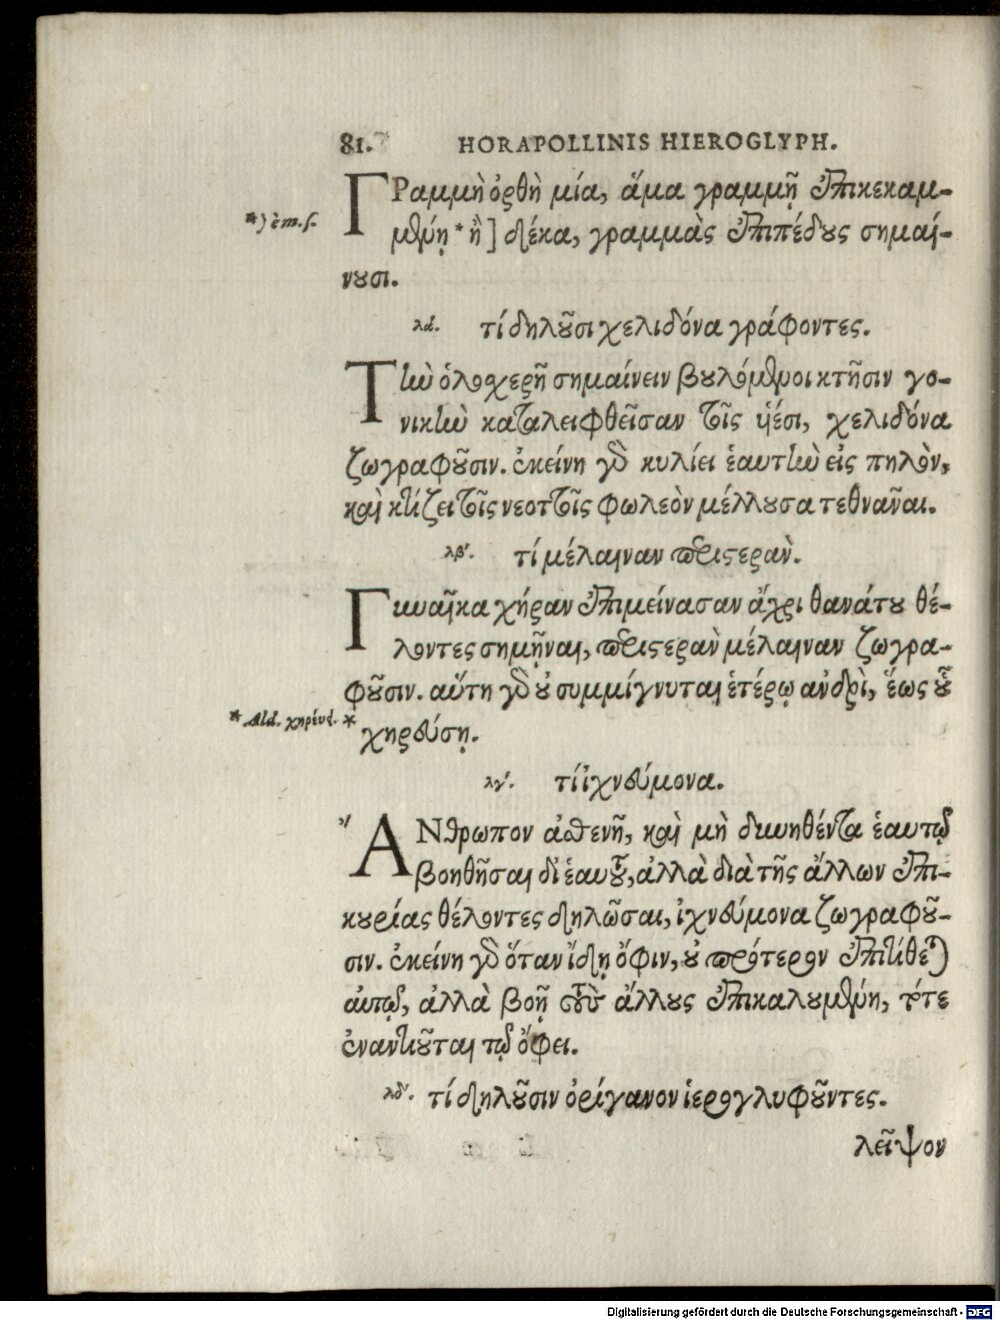 81. HORAPOLLINIS HIEROGLYPH.
ΓΡαμμὴ ὀρθὴ μία, ἅμα γραμμῇ ἐπικεκαμ-
*) è m. s.
μένῃ * ἢ ] δέκα, γραμμὰς ἐπιπέδους σημαί-
νουσι.
λά. τί δηλοῦσι χελιδόνα γράφοντες.
Τὴν ὁλοχερῆ σημαίνειν βουλόμενοι κτῆσιν γο-
νικὴν καταλειφθεῖσαν τοῖς υἱέσι, χελιδόνα
ζωγραφοῦσιν. ἐκείνη γὰρ κυλίει ἑαυτὴν εἰς πηλὸν,
καὶ κτίζει τοῖς νεοττοῖς φωλεὸν μέλλουσα τεθνᾶναι.
λβ'. τί μέλαιναν περιστεράν.
Γυναῖκα χήραν ἐπιμείνασαν ἄχρι θανάτου θέ-
λοντες σημῆναι, περιστερὰν μέλαιναν ζωγρα-
φοῦσιν. αὕτη γὰρ οὐ συμμίγνυται ἑτέρῳ ἀνδρὶ, ἕως οὗ
* Ald. *
χηρεύσῃ.
λγ'. τί ἰχνεύμονα.
ἌΝθρωπον ἀσθενῆ, καὶ μὴ δυνηθέντα ἑαυτῷ
βοηθῆσαι δι' ἑαυτοῦ, ἀλλὰ διὰ τῆς ἄλλων ἐπι-
κουρίας θέλοντες δηλῶσαι, ἰχνεύμονα ζωγραφοῦ-
σιν. ἐκείνη γὰρ ὅταν ἴδῃ ὄφιν, οὐ πρότερον ἐπιτίθεται
αὐτῷ, ἀλλὰ βοῇ τοὺς ἄλλους ἐπικαλουμένη, τότε
ἐναντιοῦται τῷ ὄφει.
λδ'. τί δηλοῦσιν ὀρίγανον ἱερογλυφοῦντες.
λεῖψον